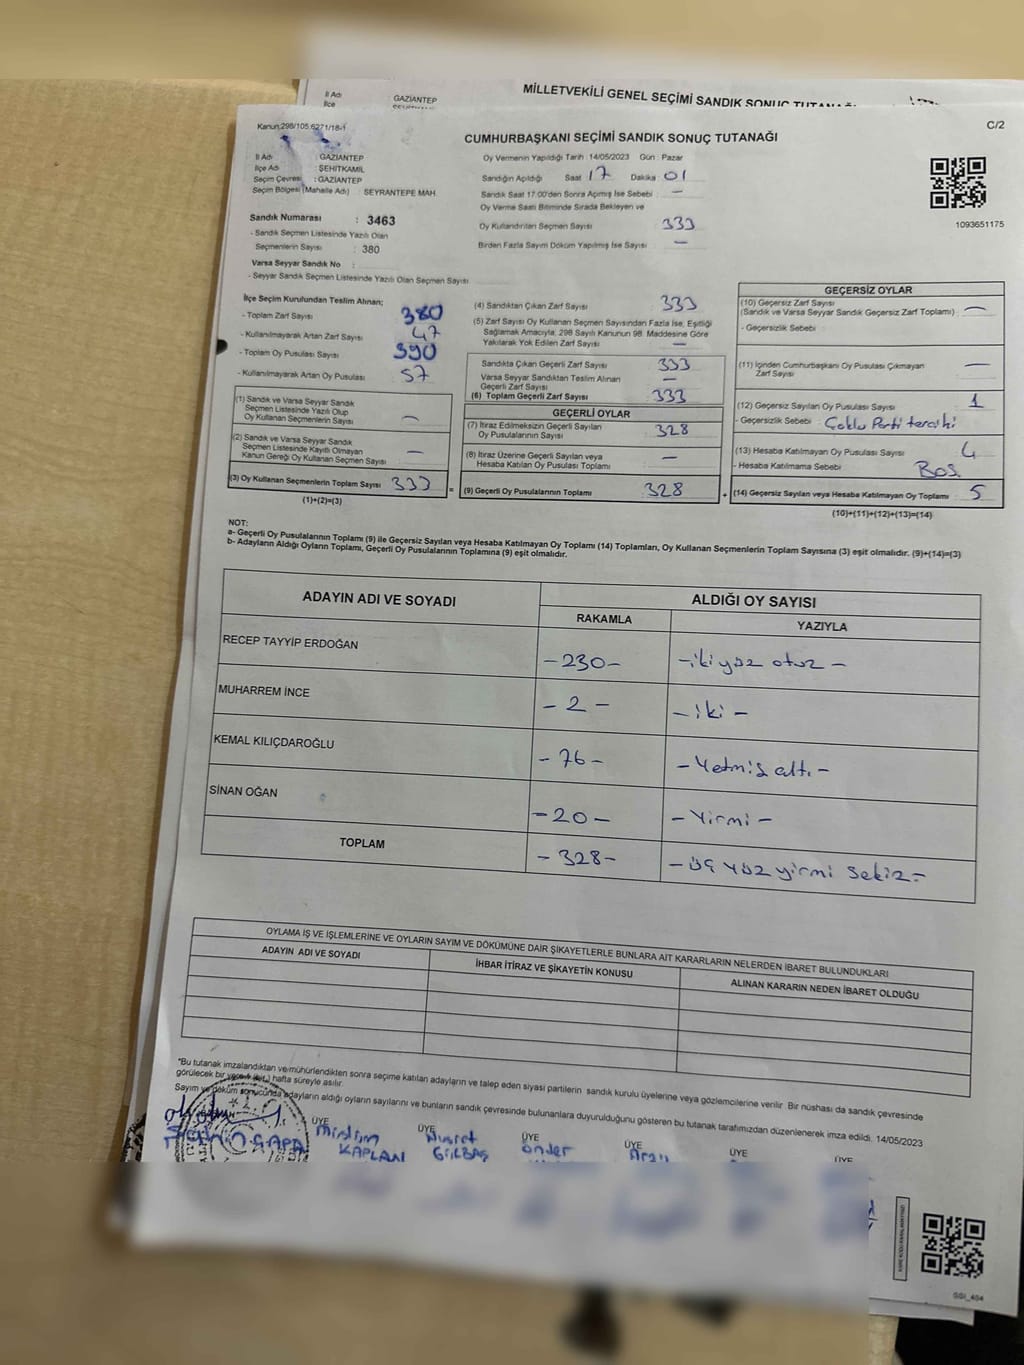 İl Adı : GAZİANTEP
İlçe
MİLLETVEKİLİ GENEL SEÇİMİ SANDIK SONUÇ TUTANAĞI
Kanun:298/105.6271/18-1
C/2
CUMHURBAŞKANI SEÇİMİ SANDIK SONUÇ TUTANAĞI
İl Adı : GAZİANTEP
İlçe Adı : ŞEHİTKAMİL
Seçim Çevresi : GAZİANTEP
Seçim Bölgesi (Mahalle Adı) : SEYRANTEPE MAH.
Oy Vermenin Yapıldığı Tarih :14/05/2023 Gün : Pazar
Sandığın Açıldığı Saat 17 Dakika 01
Sandık Saat 17:00'den Sonra Açılmış İse Sebebi : —
Oy Verme Saati Bitiminde Sırada Bekleyen ve
Oy Kullandırılan Seçmen Sayısı 333
Birden Fazla Sayım Döküm Yapılmış İse Sayısı —
1093651175
Sandık Numarası : 3463
- Sandık Seçmen Listesinde Yazılı Olan
Seçmenlerin Sayısı : 380
Varsa Seyyar Sandık No :
- Seyyar Sandık Seçmen Listesinde Yazılı Olan Seçmen Sayısı
İlçe Seçim Kurulundan Teslim Alınan;
- Toplam Zarf Sayısı 380
- Kullanılmayarak Artan Zarf Sayısı 47
- Toplam Oy Pusulası Sayısı 390
- Kullanılmayarak Artan Oy Pusulası 57
(1) Sandık ve Varsa Seyyar Sandık
Seçmen Listesinde Yazılı Olup
Oy Kullanan Seçmenlerin Sayısı —
(2) Sandık ve Varsa Seyyar Sandık
Seçmen Listesinde Kayıtlı Olmayan
Kanun Gereği Oy Kullanan Seçmen Sayısı —
(3) Oy Kullanan Seçmenlerin Toplam Sayısı 333
(1)+(2)=(3)
(4) Sandıktan Çıkan Zarf Sayısı 333
(5) Zarf Sayısı Oy Kullanan Seçmen Sayısından Fazla İse, Eşitliği
Sağlamak Amacıyla, 298 Sayılı Kanunun 98. Maddesine Göre
Yakılarak Yok Edilen Zarf Sayısı —
Sandıkta Çıkan Geçerli Zarf Sayısı 333
Varsa Seyyar Sandıktan Teslim Alınan
Geçerli Zarf Sayısı —
(6) Toplam Geçerli Zarf Sayısı 333
GEÇERLİ OYLAR
(7) İtiraz Edilmeksizin Geçerli Sayılan
Oy Pusulalarının Sayısı 328
(8) İtiraz Üzerine Geçerli Sayılan veya
Hesaba Katılan Oy Pusulası Toplamı —
= (9) Geçerli Oy Pusulalarının Toplamı 328 +
GEÇERSİZ OYLAR
(10) Geçersiz Zarf Sayısı
(Sandık ve Varsa Seyyar Sandık Geçersiz Zarf Toplamı) : —
- Geçersizlik Sebebi :
(11) İçinden Cumhurbaşkanı Oy Pusulası Çıkmayan
Zarf Sayısı —
(12) Geçersiz Sayılan Oy Pusulası Sayısı 1
- Geçersizlik Sebebi : Çoklu Parti tercihi
(13) Hesaba Katılmayan Oy Pusulası Sayısı 4
- Hesaba Katılmama Sebebi Boş
(14) Geçersiz Sayılan veya Hesaba Katılmayan Oy Toplamı 5
(10)+(11)+(12)+(13)=(14)
NOT:
a- Geçerli Oy Pusulalarının Toplamı (9) ile Geçersiz Sayılan veya Hesaba Katılmayan Oy Toplamı (14) Toplamları, Oy Kullanan Seçmenlerin Toplam Sayısına (3) eşit olmalıdır. (9)+(14)=(3)
b- Adayların Aldığı Oyların Toplamı, Geçerli Oy Pusulalarının Toplamına (9) eşit olmalıdır.
ADAYIN ADI VE SOYADI ALDIĞI OY SAYISI
RAKAMLA YAZIYLA
RECEP TAYYİP ERDOĞAN -230- -iki yüz otuz -
MUHARREM İNCE - 2 - - iki -
KEMAL KILIÇDAROĞLU - 76 - - Yetmiş altı -
SİNAN OĞAN - 20 - - Yirmi -
TOPLAM - 328 - - üç yüz yirmi sekiz -
OYLAMA İŞ VE İŞLEMLERİNE VE OYLARIN SAYIM VE DÖKÜMÜNE DAİR ŞİKAYETLERLE BUNLARA AİT KARARLARIN NELERDEN İBARET BULUNDUKLARI
ADAYIN ADI VE SOYADI İHBAR İTİRAZ VE ŞİKAYETİN KONUSU ALINAN KARARIN NEDEN İBARET OLDUĞU
*Bu tutanak imzalandıktan ve mühürlendikten sonra seçime katılan adayların ve talep eden siyasi partilerin sandık kurulu üyelerine veya gözlemcilerine verilir. Bir nüshası da sandık çevresinde
görülecek bir yere hafta süreyle asılır.
Sayım ve döküm sonucunda adayların aldığı oyların sayılarını ve bunların sandık çevresinde bulunanlara duyurulduğunu gösteren bu tutanak tarafımızdan düzenlenerek imza edildi. 14/05/2023
ÜYE ÜYE ÜYE ÜYE ÜYE ÜYE
KAPLAN Nusret GÜLBAŞ önder
GSI_404